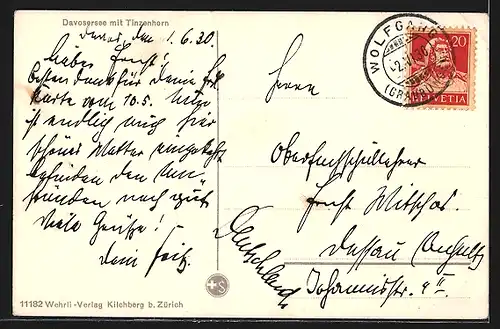 Davosersee mit Tinzenhorn
Davos, den 1.6.30.
Lieber Ernst!
besten Dank für Deine
Karte vom 10.5. Nun
ist endlich auch hier
schönes Wetter eingekehrt
befinden den Um-
ständen nach gut.
Viele Grüße!
Dein Fritz.
11182 Wehrli-Verlag Kilchberg b. Zürich
WOLFGANG
(GRAUB.)
20
HELVETIA
Herrn
Ernst
Dessau (Anhalt)
Johannisstr. 4 II
Deutschland